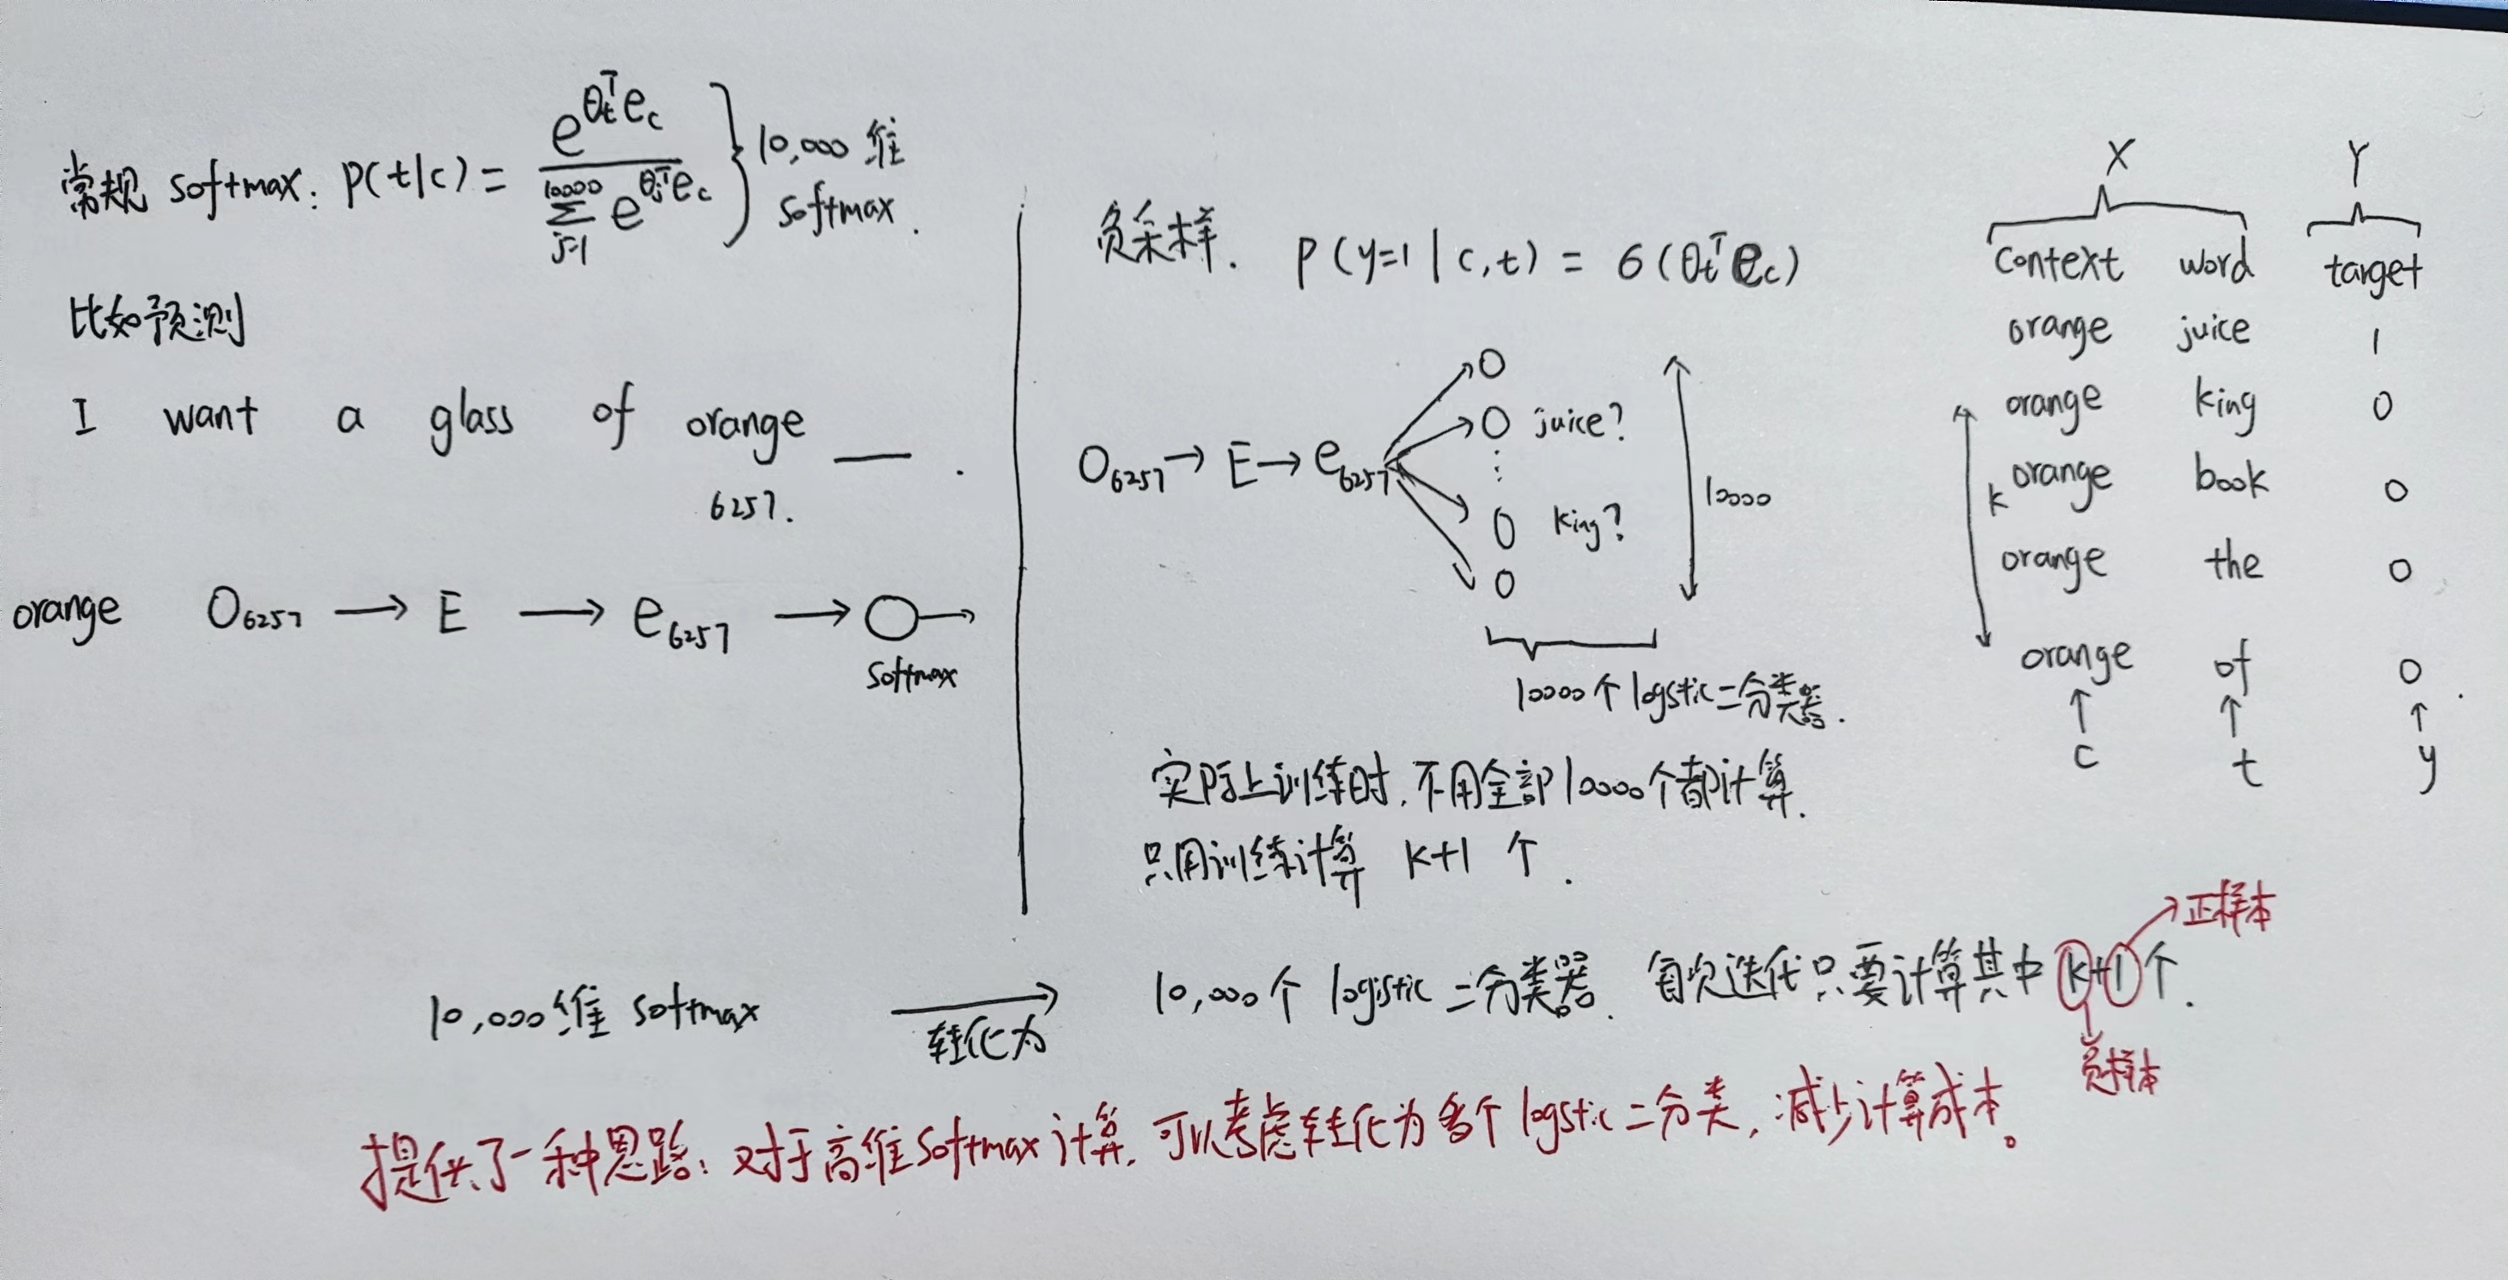 常规 softmax: P(t|c) = e^{θ_t^T e_c} / Σ_{j=1}^{10000} e^{θ_j^T e_c} } 10,000 维 softmax.
比如预测
I want a glass of orange ___ .
6257.
orange O_{6257} → E → e_{6257} → ○ →
softmax
负采样. P(y=1|c,t) = σ(θ_t^T e_c)
O_{6257} → E → e_{6257}
juice?
king?
10000
10000个 logstic 二分类器.
实际上训练时, 不用全部10000个都计算.
只用训练计算 k+1 个.
X Y
context word target
orange juice 1
orange king 0
k
orange book 0
orange the 0
orange of 0
↑ ↑ ↑
c t y
10,000维 softmax → 转化为 10,000个 logistic 二分类器. 每次迭代只要计算其中 k+1 个.
正样本
负样本
提供了一种思路: 对于高维softmax计算, 可以考虑转化为多个 logstic 二分类, 减少计算成本。